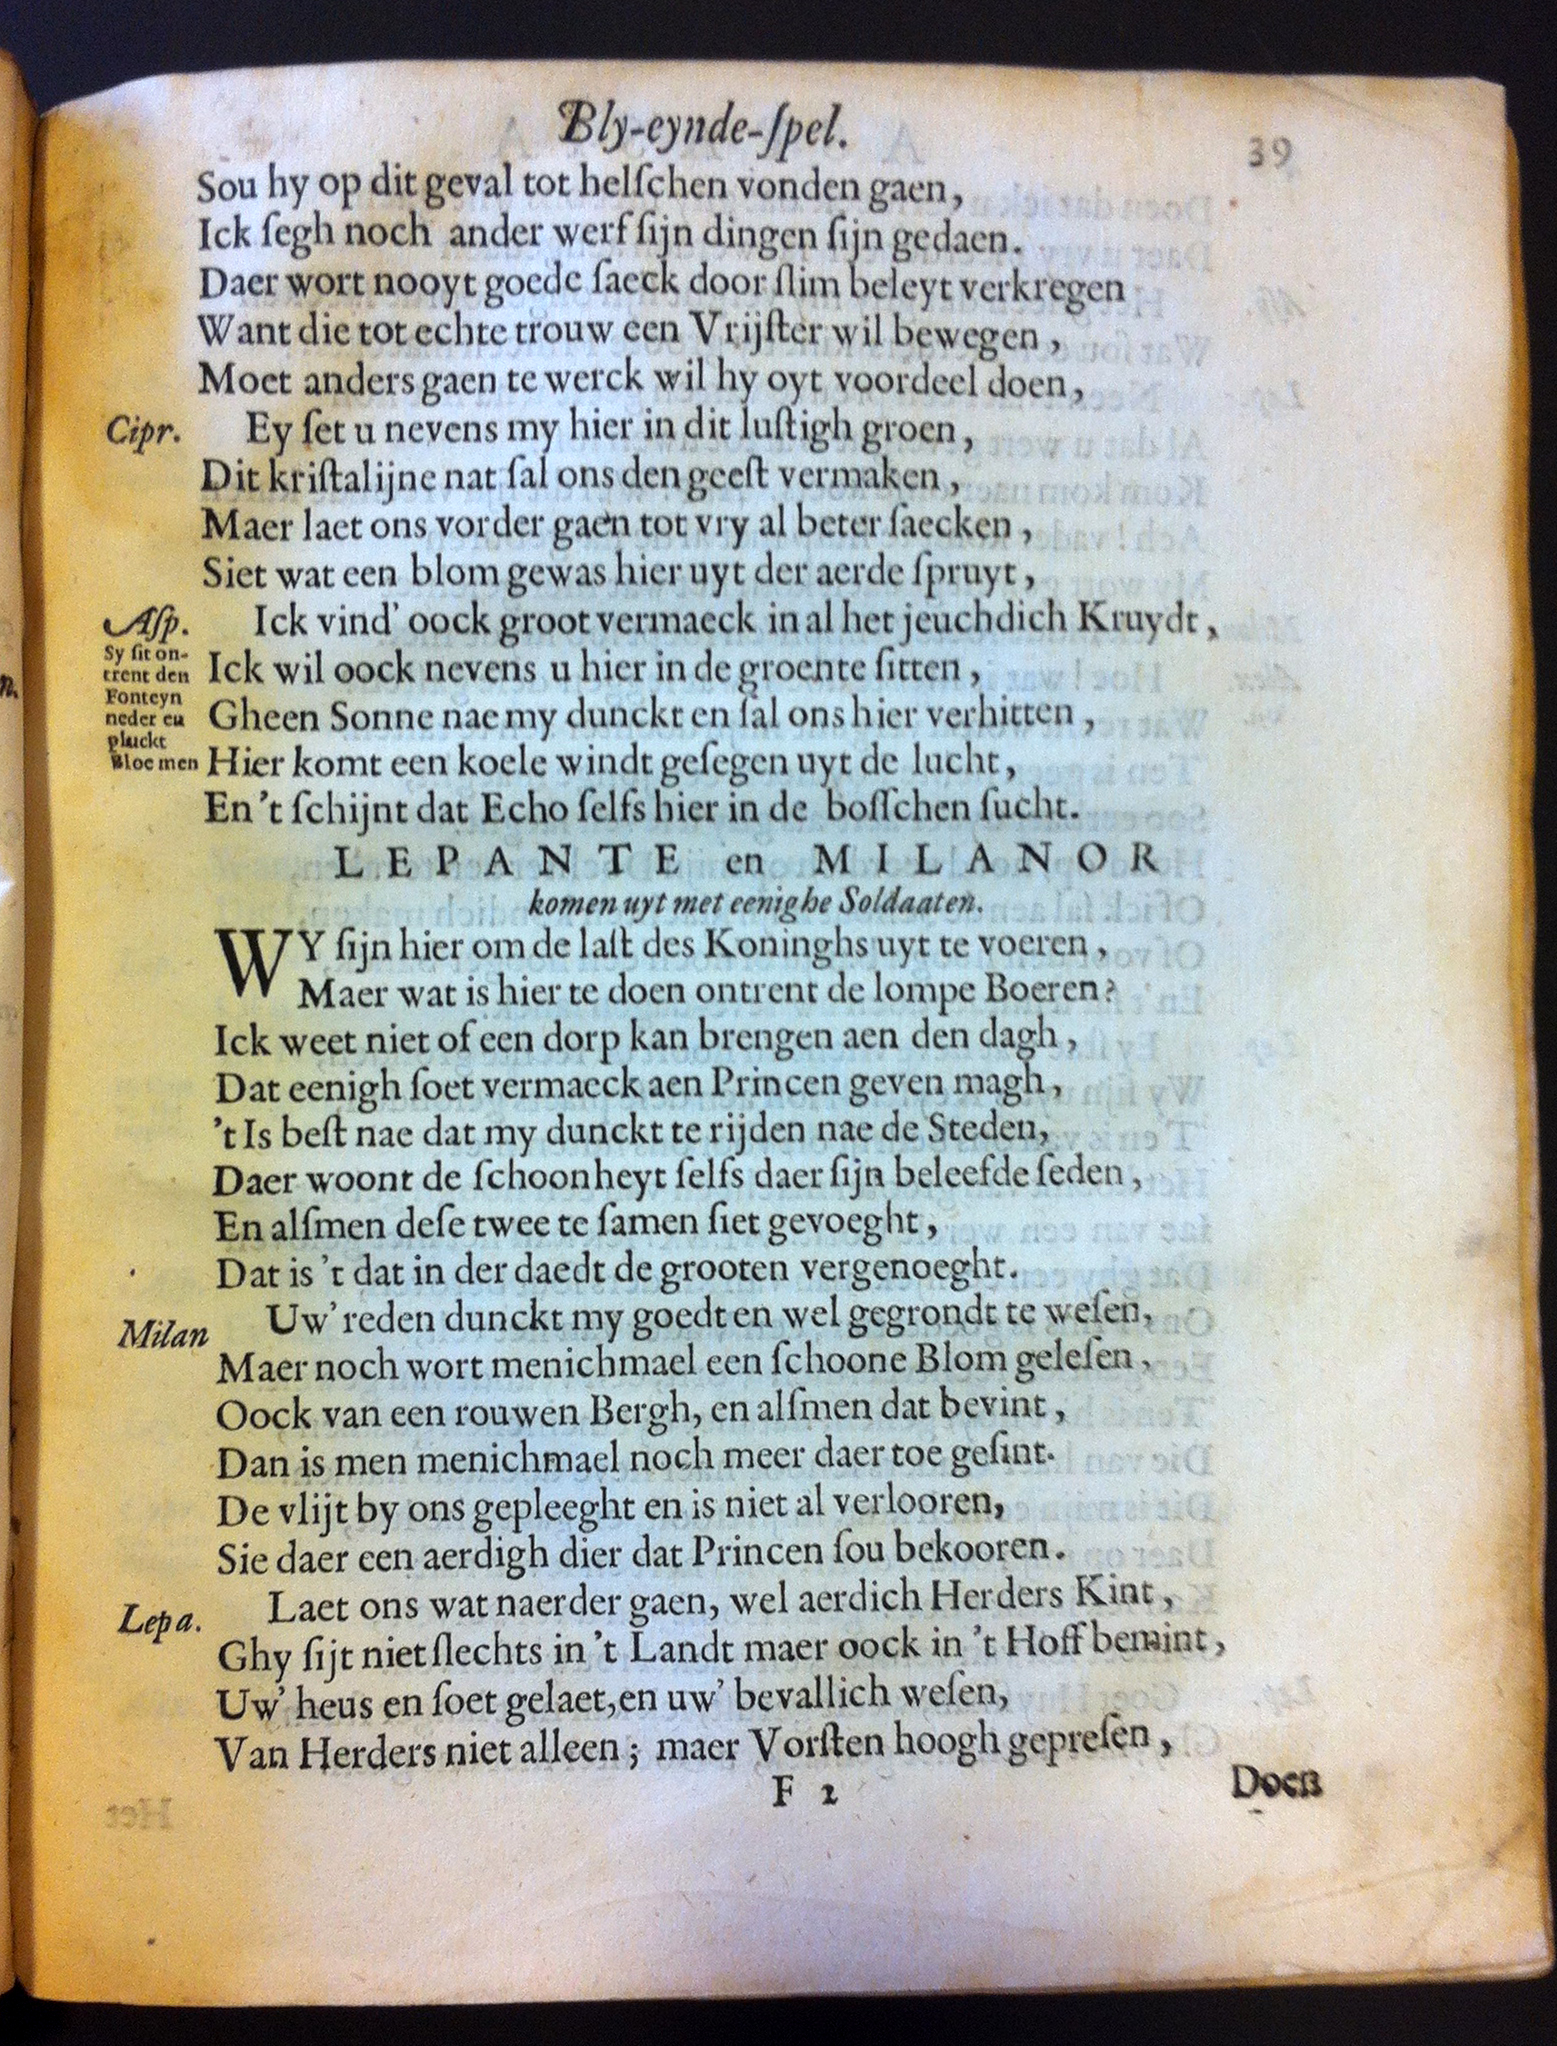 Bly-eynde-ſpel.
39
Sou hy op dit geval tot helſchen vonden gaen,
Ick ſegh noch ander werf ſijn dingen ſijn gedaen.
Daer wort nooyt goede ſaeck door ſlim beleyt verkregen
Want die tot echte trouw een Vrijſter wil bewegen,
Moet anders gaen te werck wil hy oyt voordeel doen,
Cipr. Ey ſet u nevens my hier in dit luſtigh groen,
Dit kriſtalijne nat ſal ons den geeſt vermaken,
Maer laet ons vorder gaen tot vry al beter ſaecken,
Siet wat een blom gewas hier uyt der aerde ſpruyt,
Aſp. Ick vind' oock groot vermaeck in al het jeuchdich Kruydt,
Sy ſit on-
trent den
Fonteyn
neder en
pluckt
Bloemen
Ick wil oock nevens u hier in de groente ſitten,
Gheen Sonne nae my dunckt en ſal ons hier verhitten,
Hier komt een koele windt geſegen uyt de lucht,
En 't ſchijnt dat Echo ſelfs hier in de boſſchen ſucht.
LEPANTE en MILANOR
komen uyt met eenighe Soldaaten.
WY ſijn hier om de laſt des Koninghs uyt te voeren,
Maer wat is hier te doen ontrent de lompe Boeren?
Ick weet niet of een dorp kan brengen aen den dagh,
Dat eenigh ſoet vermaeck aen Princen geven magh,
't Is beſt nae dat my dunckt te rijden nae de Steden,
Daer woont de ſchoonheyt ſelfs daer ſijn beleefde ſeden,
En alſmen deſe twee te ſamen ſiet gevoeght,
Dat is 't dat in der daedt de grooten vergenoeght.
Milan Uw' reden dunckt my goedt en wel gegrondt te weſen,
Maer noch wort menichmael een ſchoone Blom geleſen,
Oock van een rouwen Bergh, en alſmen dat bevint,
Dan is men menichmael noch meer daer toe geſint.
De vlijt by ons gepleeght en is niet al verlooren,
Sie daer een aerdigh dier dat Princen ſou bekooren.
Lepa. Laet ons wat naerder gaen, wel aerdich Herders Kint,
Ghy ſijt niet ſlechts in 't Landt maer oock in 't Hoff bemint,
Uw' heus en ſoet gelaet, en uw' bevallich weſen,
Van Herders niet alleen; maer Vorſten hoogh gepreſen,
F 2
Doen